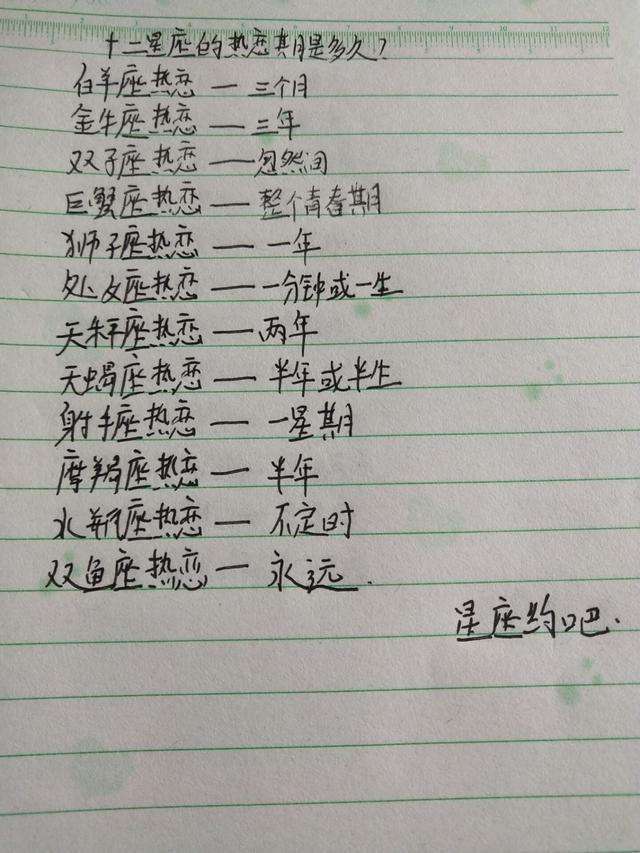 十二星座的热恋期是多久？
白羊座热恋 — 三个月
金牛座热恋 — 三年
双子座热恋 — 忽然间
巨蟹座热恋 — 整个青春期
狮子座热恋 — 一年
处女座热恋 — 一分钟或一生
天秤座热恋 — 两年
天蝎座热恋 — 半年或半生
射手座热恋 — 一星期
摩羯座热恋 — 半年
水瓶座热恋 — 不定时
双鱼座热恋 — 永远.
星座约吧.